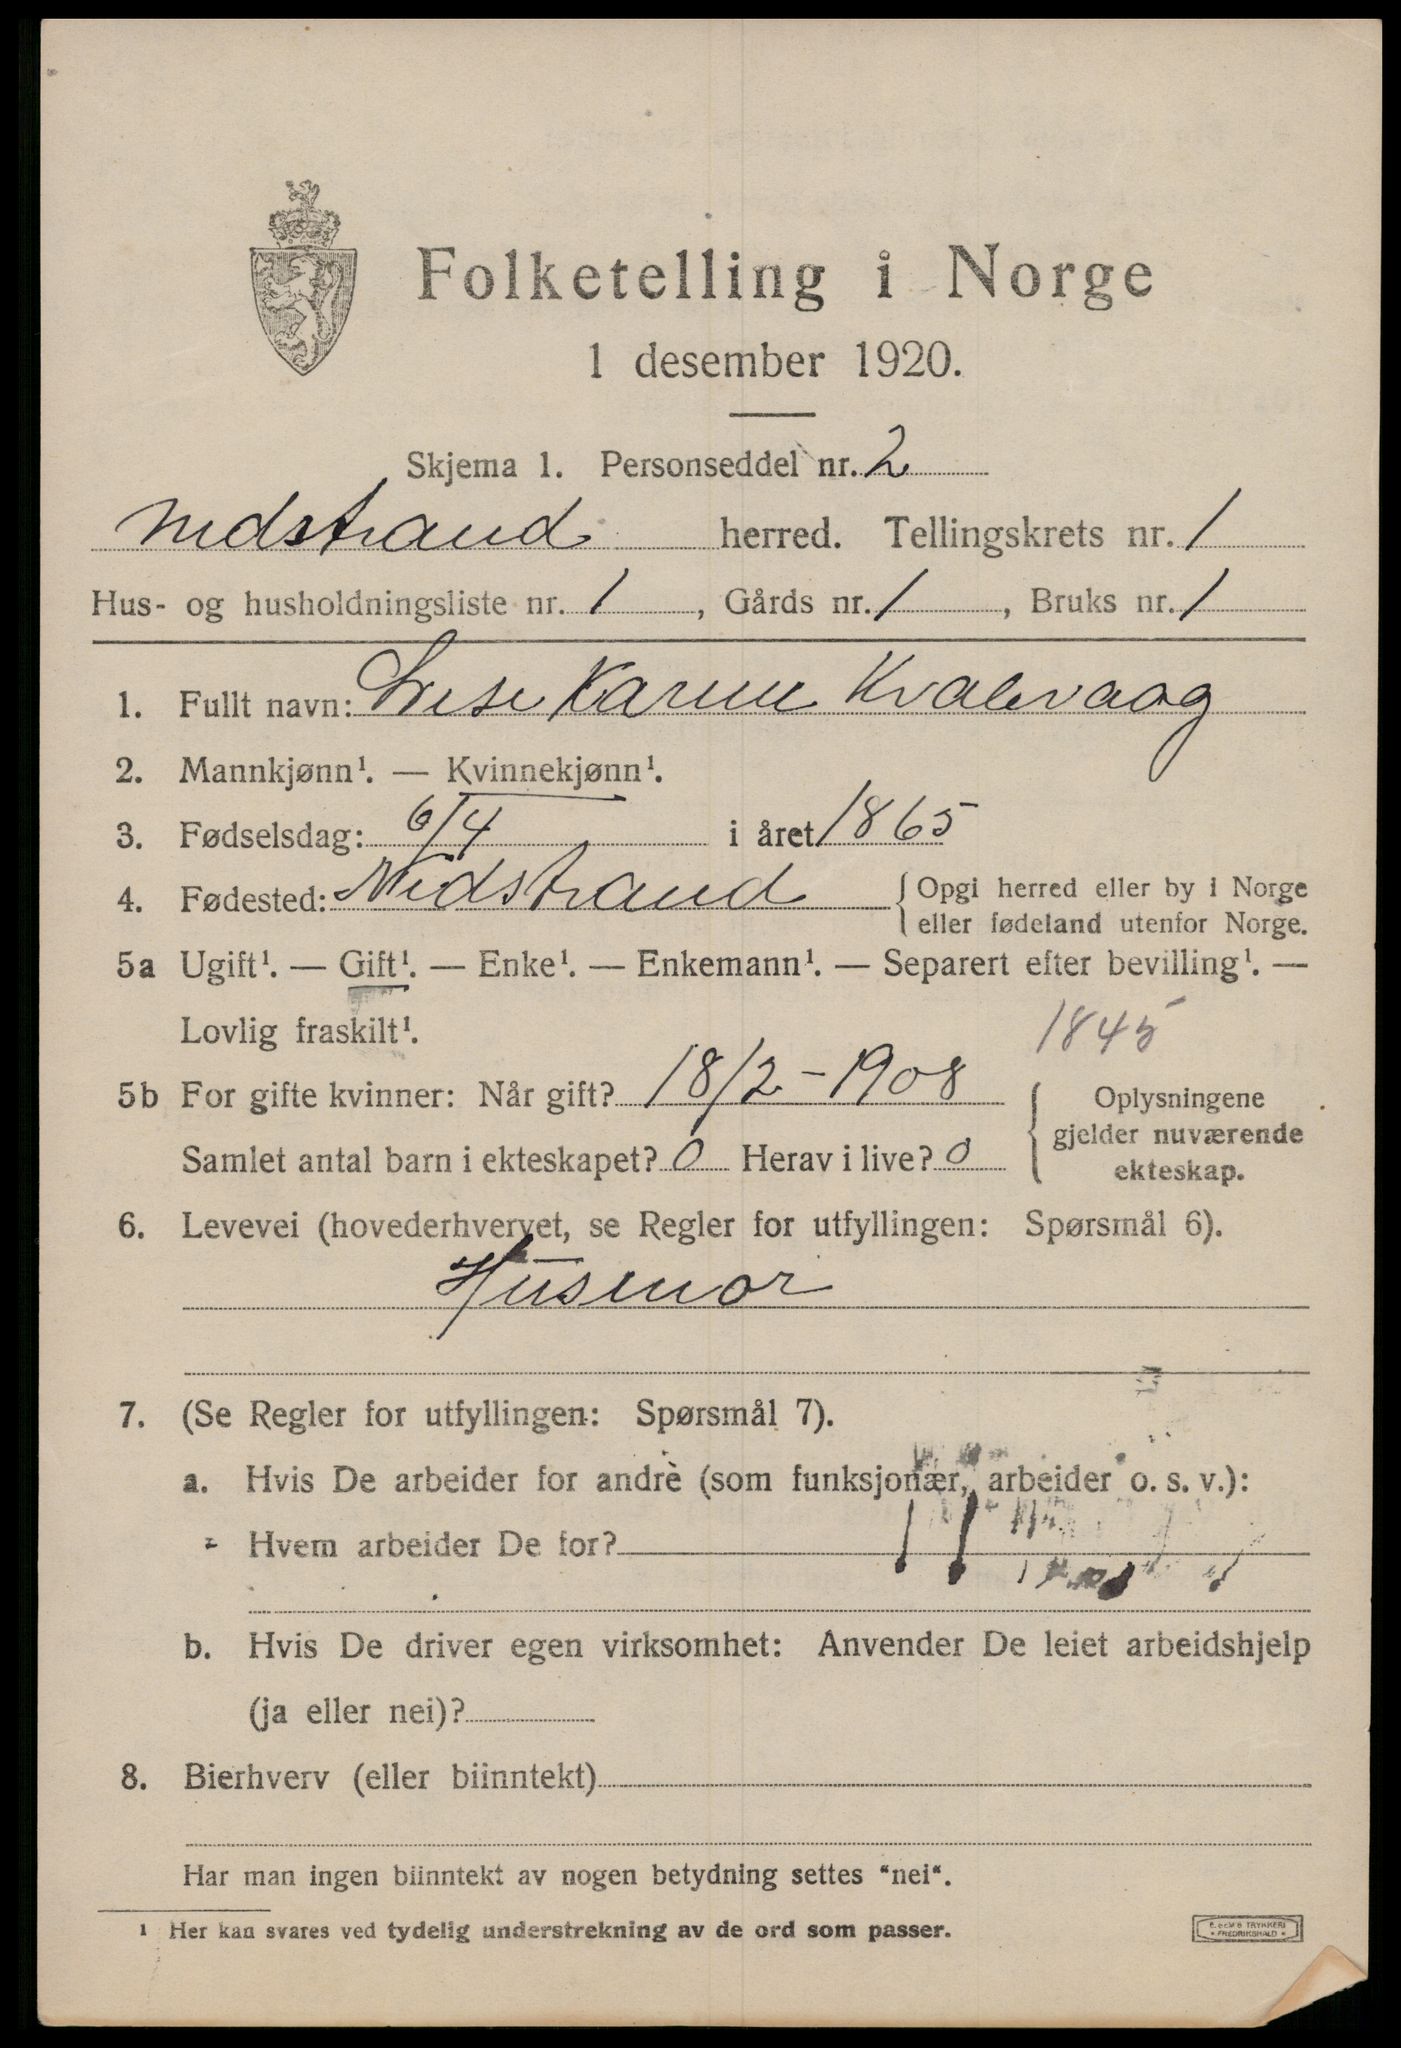 Folketelling i Norge
1 desember 1920.
Skjema 1. Personseddel nr. 2
Nedstrand herred. Tellingskrets nr. 1
Hus- og husholdningsliste nr. 1, Gårds nr. 1, Bruks nr. 1
1. Fullt navn: Karine Kvalevaag
2. Mannkjønn¹. — Kvinnekjønn¹.
3. Fødselsdag: 6/4 i året 1865
4. Fødested: Nedstrand { Opgi herred eller by i Norge
eller fødeland utenfor Norge.
5a Ugift¹. — Gift¹. — Enke¹. — Enkemann¹. — Separert efter bevilling¹. —
Lovlig fraskilt¹.
1845
5b For gifte kvinner: Når gift? 18/2 - 1908
Samlet antal barn i ekteskapet? 0 Herav i live? 0
{ Oplysningene
gjelder nuværende
ekteskap.
6. Levevei (hovederhvervet, se Regler for utfyllingen: Spørsmål 6).
Husmor
7. (Se Regler for utfyllingen: Spørsmål 7).
a. Hvis De arbeider for andre (som funksjonær, arbeider o. s. v.):
Hvem arbeider De for?
b. Hvis De driver egen virksomhet: Anvender De leiet arbeidshjelp
(ja eller nei)?
8. Bierhverv (eller biinntekt)
Har man ingen biinntekt av nogen betydning settes "nei".
¹ Her kan svares ved tydelig understrekning av de ord som passer.
TRYKKERI
* FREDRIKSHALD *